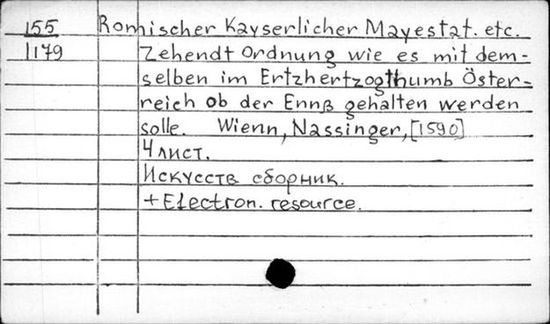 155 Romischer Kayserlicher Mayestat. etc.
1179 Zehendt Ordnung wie es mit dem-
selben im Ertzhertzogthumb Öster-
reich ob der Ennß gehalten werden
solle. Wienn, Nassinger, [1590]
4 лист.
Искусств сборник.
+ Electron. resource.